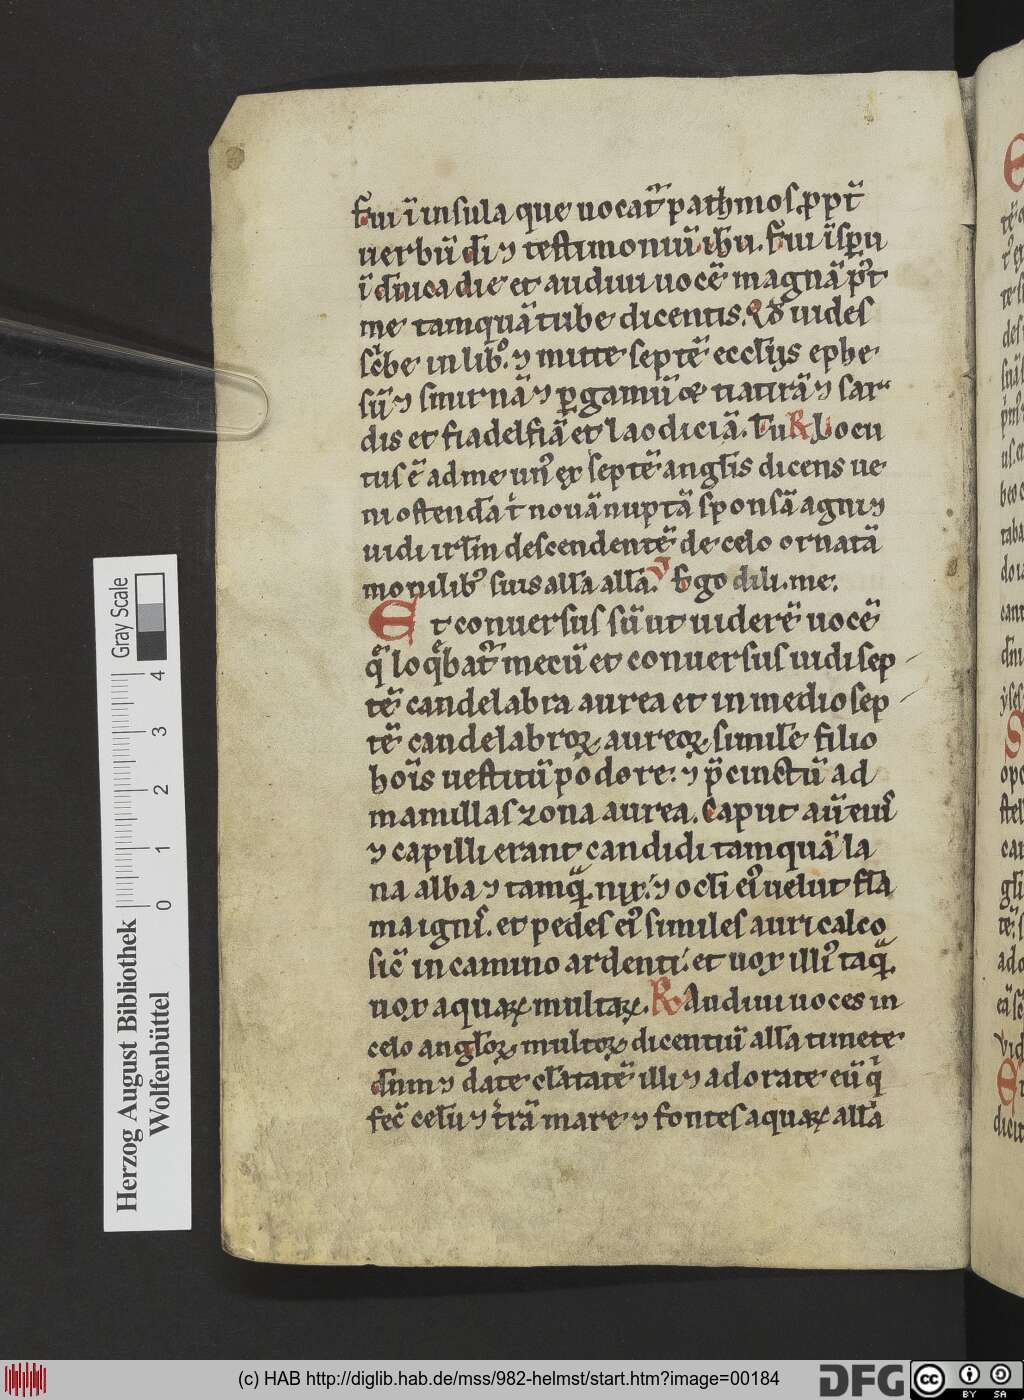 Fui ī insula que uocat᷑ pathmos. ꝓpt̄
uerbū dī ⁊ testimoniū ihu. Fui ī spu
ī dn̄ica die et audiui uocē magnā p᷑t
me tamquā tube dicentis. Qd̄ uides
sc̄be in libº. ⁊ mitte septē eccl̄ijs ephe
sū ⁊ smirnā ⁊ ꝑgamū et tiatirā ⁊ sar
dis et fiadelfiā et laodiciā. Tu R Locu
tus ē ad me unꝰ ex septē angl̄is dicens ue
ni ostendā t̄ nouā nuptā sponsā agni ⁊
uidi irl̄m descendentē de celo ornatā
monilibꝰ suis all̄a all̄a. V Ego dili. me.
Et conuersus sū ut uiderē uocē
q̄ loq̄bat᷑ mecū et conuersus uidi sep
tē candelabra aurea et in medio sep
tē candelabroꝝ aureoꝝ simile filio
hoīs uestitū podore. ⁊ p̄cinctū ad
mamillas zona aurea. Caput aū eiꝰ
⁊ capilli erant candidi tamquā la
na alba ⁊ tamq̄. nix. ⁊ ocl̄i eiꝰ uelut flā
ma ignis. et pedes eiꝰ similes auricalco
sic̄ in camino ardenti. et uox illiꝰ taq̄.
uox aquaꝝ multaꝝ. R Audiui uoces in
celo angl̄oꝝ multoꝝ dicentiū all̄a timete
dn̄m ⁊ date cl̄atatē illi ⁊ adorate eū q̇
fec̄ celū ⁊ t̄rā mare ⁊ fontes aquaꝝ all̄a
Herzog August Bibliothek
Wolfenbüttel
Gray Scale
0 1 2 3 4
(c) HAB http://diglib.hab.de/mss/982-helmst/start.htm?image=00184
DFG
cc BY SA